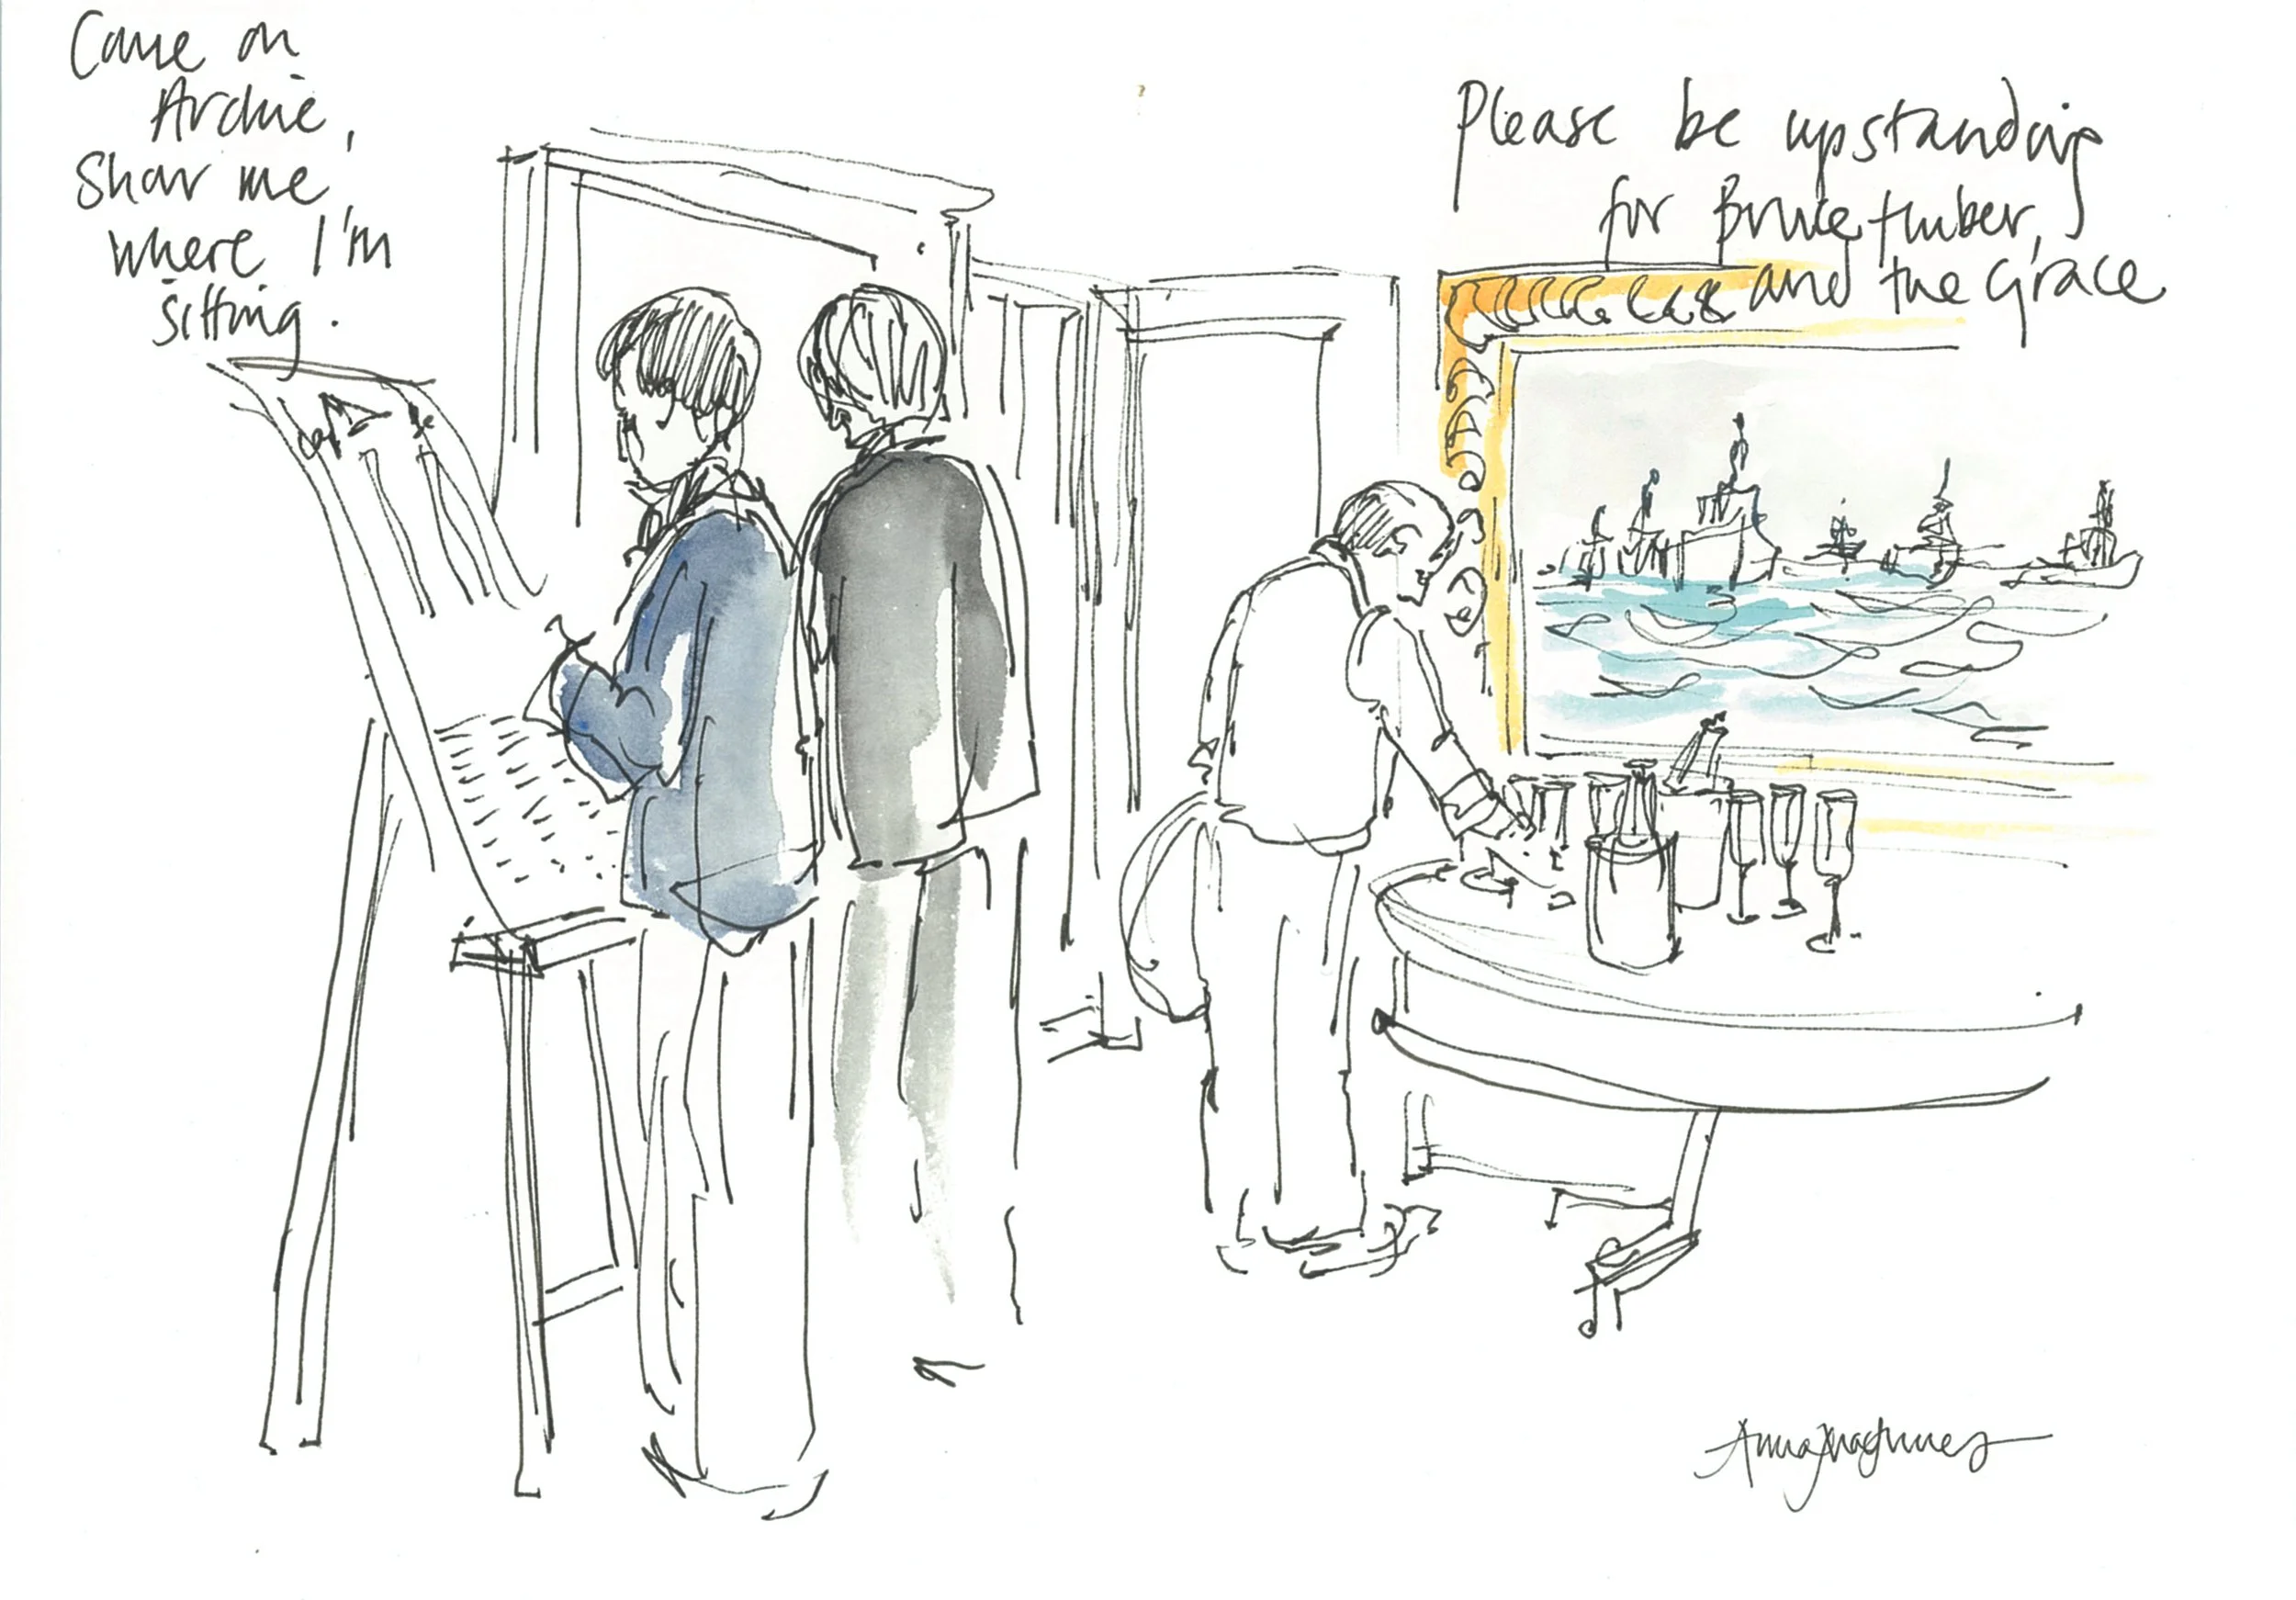 Come on
Archie,
Show me
where I'm
sitting.
Please be upstanding
for Bruce + Amber,
and the Grace